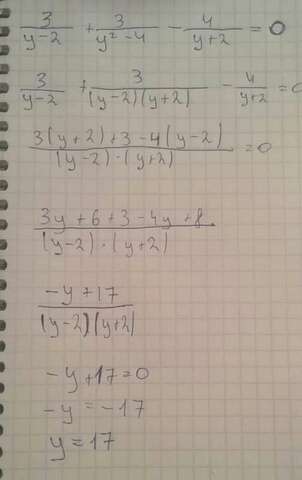 3/(y-2) + 3/(y²-4) - 4/(y+2) = 0
3/(y-2) + 3/((y-2)(y+2)) - 4/(y+2) = 0
(3(y+2)+3-4(y-2))/((y-2)·(y+2)) = 0
(3y+6+3-4y+8)/((y-2)·(y+2))
(-y+17)/((y-2)(y+2))
-y+17=0
-y=-17
y=17